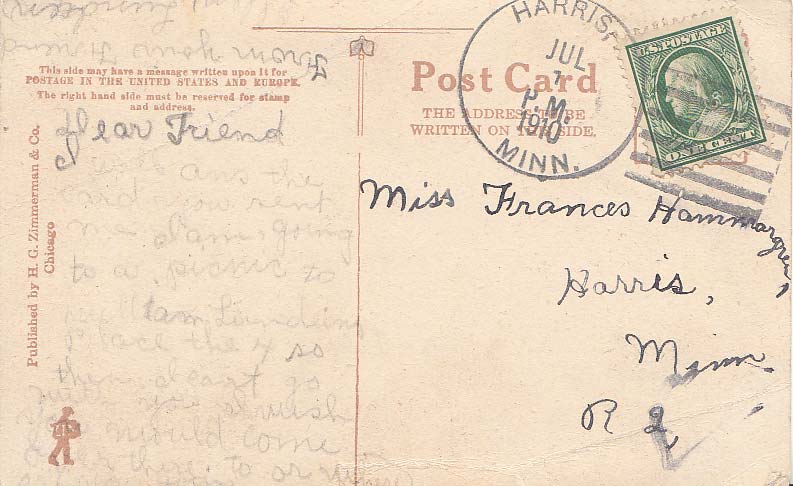 This side may have a message written upon it for
POSTAGE IN THE UNITED STATES AND EUROPE.
The right hand side must be reserved for stamp
and address.
Published by H. G. Zimmerman & Co.
Chicago
Dear Friend
I will ans the
card you sent
me I am going
to a picnic to
Place the 4 so
then I cant go
with you I wish
you would come
over there to
From your Friend
Post Card
THE ADDRESS TO BE
WRITTEN ON THIS SIDE.
HARRIS,
JUL
7
P.M.
1910
MINN.
U.S. POSTAGE
ONE CENT
Miss Frances Hammargren,
Harris,
Minn.
R 2